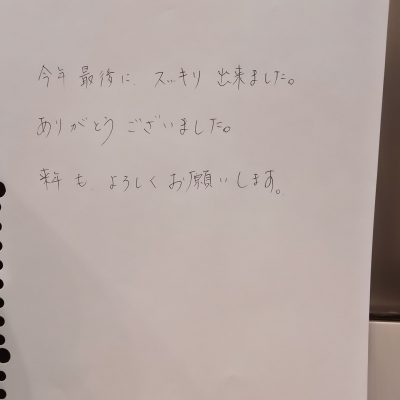 今年最後に、スッキリ出来ました。
ありがとうございました。
来年も、よろしくお願いします。